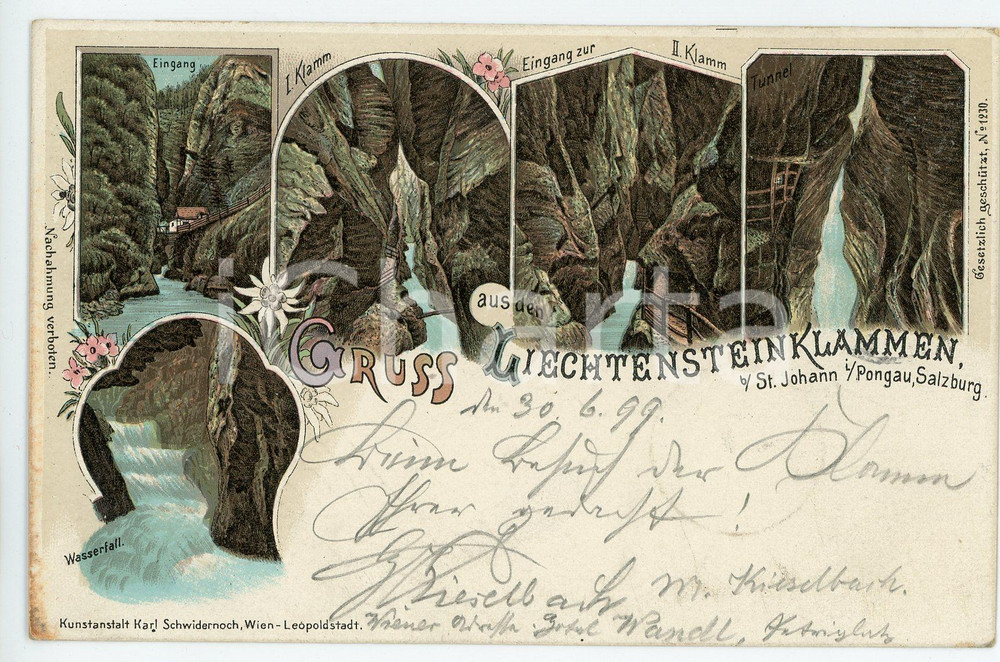 Eingang
I. Klamm
Eingang zur II. Klamm
Tunnel
Gesetzlich geschützt, No 1230.
Nachahmung verboten.
Gruss aus den Liechtensteinklammen,
b/ St. Johann i/Pongau, Salzburg.
iCharta
den 30. 6. 99.
Beim Besuch der Klamm
Ihrer gedacht!
Kieselbach M. Kieselbach.
Wiener Adresse Hotel Wandl, Petriplatz
Wasserfall.
Kunstanstalt Karl Schwidernoch, Wien - Leopoldstadt.